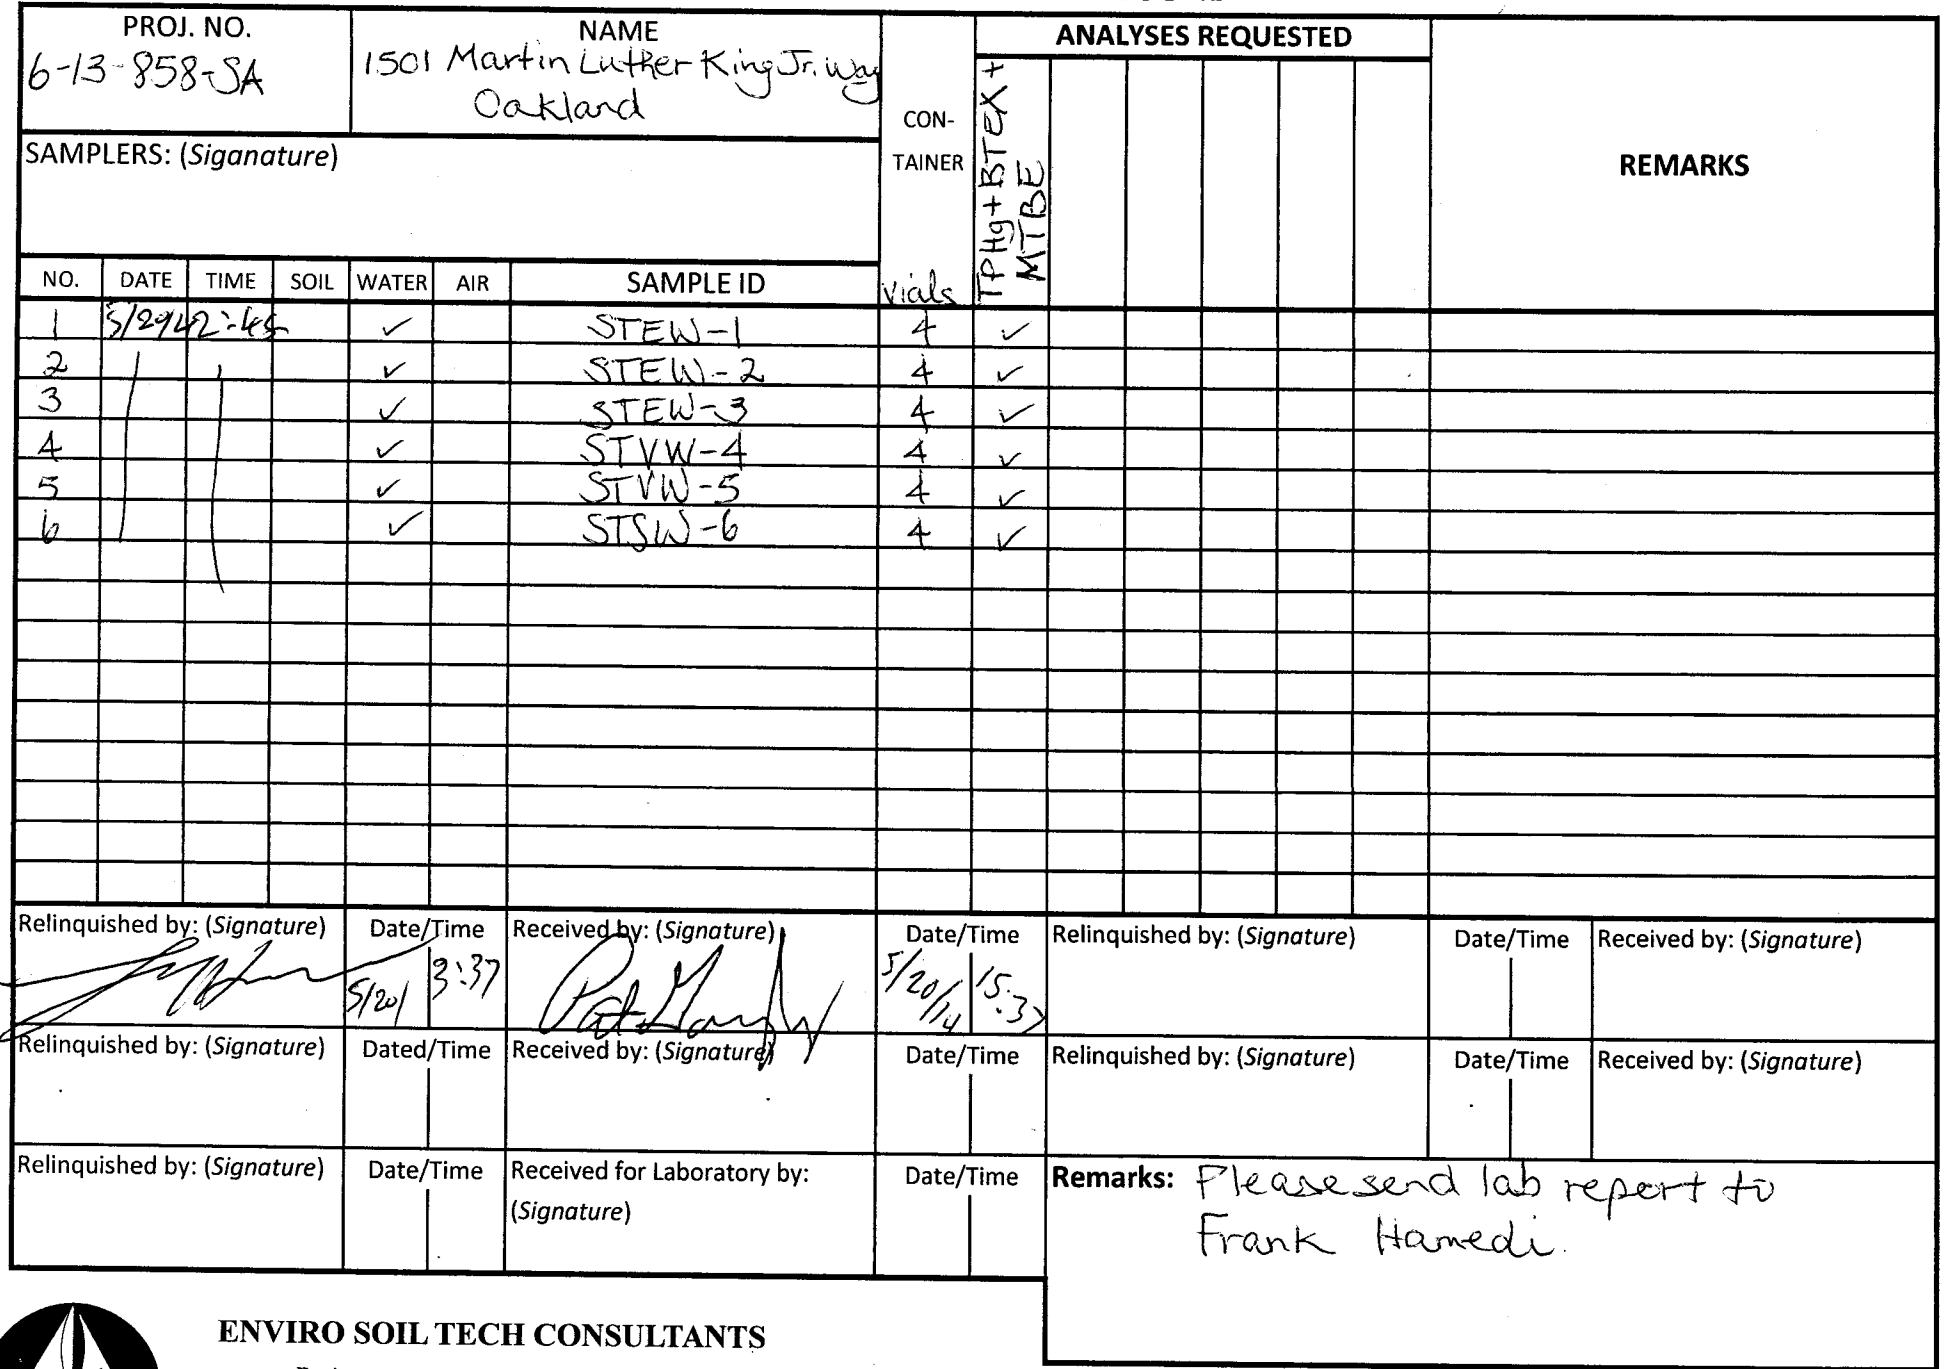 PROJ. NO.
6-13-858-SA
NAME
1501 Martin Luther King Jr. Way
Oakland
SAMPLERS: (Siganature)
CON-
TAINER
vials
ANALYSES REQUESTED
TPHg+BTEX+
MTBE
REMARKS
NO. DATE TIME SOIL WATER AIR SAMPLE ID
1 ✓ STEW-1 4 ✓
2 ✓ STEW-2 4 ✓
3 ✓ STEW-3 4 ✓
4 ✓ STVW-4 4 ✓
5 ✓ STVW-5 4 ✓
6 ✓ STSW-6 4 ✓
Relinquished by: (Signature) Date/Time Received by: (Signature) Date/Time Relinquished by: (Signature) Date/Time Received by: (Signature)
5/20/ 3:37 5/20/14 15:37
Relinquished by: (Signature) Dated/Time Received by: (Signature) Date/Time Relinquished by: (Signature) Date/Time Received by: (Signature)
Relinquished by: (Signature) Date/Time Received for Laboratory by: Date/Time
(Signature)
Remarks: Please send lab report to
Frank Hamedi.
ENVIRO SOIL TECH CONSULTANTS